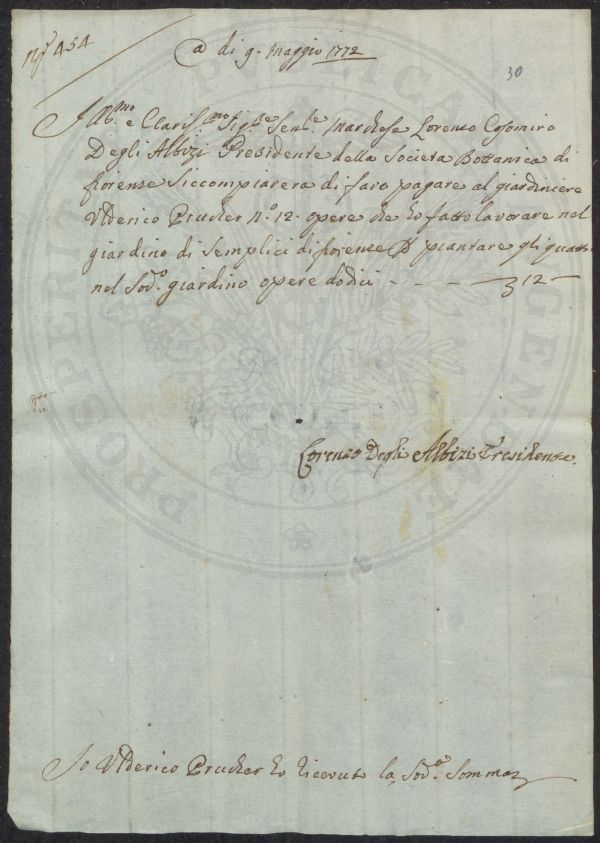 N° 454
a di 9. Maggio 1772
30
Ill.mo e Claris.mo Sig.re Sen.re Marchese Lorenzo Cosomiro
Degli Albizi Presidente della Societa Bottanica di
fiorenze Siccompiacera di faro pagare al giardiniere
Vlderico Prucker N.° 12. opere che ho fatto lavorare nel
giardino di Semplici di fiorenze p piantare gli
nel Sod.o giardino opere dodici - - - - 12 -
Lorenzo Degli Albizi Presidente.
Io Vlderico Prucker ho riceuuto la Sod.a Somma
PROSPERITATI PVBLICAE AVGENDAE